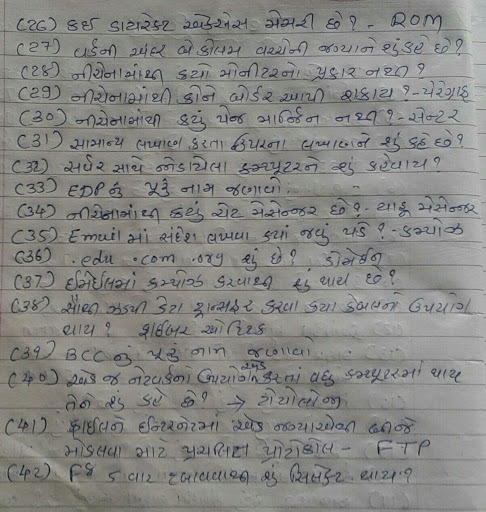 (26) કઈ ડાયરેક્ટ એક્સેસ મેમરી છે? - ROM
(27) વર્ડની અંદર બે કોલમ વચ્ચેની જગ્યાને શું કહે છે?
(28) નીચેનામાંથી કયો મોનીટરનો પ્રકાર નથી?
(29) નીચેનામાંથી કોને બોર્ડર આપી શકાય? - પેરેગ્રાફ
(30) નીચેનામાંથી કયું પેજ માર્જિન નથી? - સેન્ટર
(31) સામાન્ય લખાણ કરતા ઉપરના લખાણને શું કહે છે?
(32) સર્વર સાથે જોડાયેલા કમ્પ્યુટરને શું કહેવાય?
(33) EDP નું પૂરું નામ જણાવો.
(34) નીચેનામાંથી કયું ચેટ મેસેન્જર છે? - યાહુ મેસેન્જર
(35) Email માં સંદેશ લખવા કયાં જવું પડે? - કમ્પોઝ
(36) .edu .com .org શું છે? ડોમેઈન
(37) ઈમેઈલમાં કમ્પોઝ કરવાથી શું થાય છે?
(38) સૌથી ઝડપી ડેટા ટ્રાન્સફર કરવા કયા કેબલનો ઉપયોગ
થાય? ફાઈબર ઓપ્ટિક
(39) BCC નું પૂરું નામ જણાવો.
(40) એક જ નેટવર્કનો ઉપયોગ એક કરતાં વધુ કમ્પ્યુટરમાં થાય
તેને શું કહે છે? → ટોપોલોજી
(41) ફાઈલને ઈન્ટરનેટમાં એક જગ્યાએથી બીજે
મોકલવા માટે પ્રચલિત પ્રોટોકોલ - FTP
(42) F8 5 વાર દબાવવાથી શું સિલેક્ટ થાય?